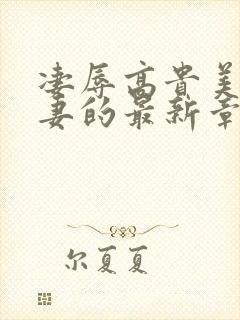 凄辱高贵美
妻的最新章
尔夏夏